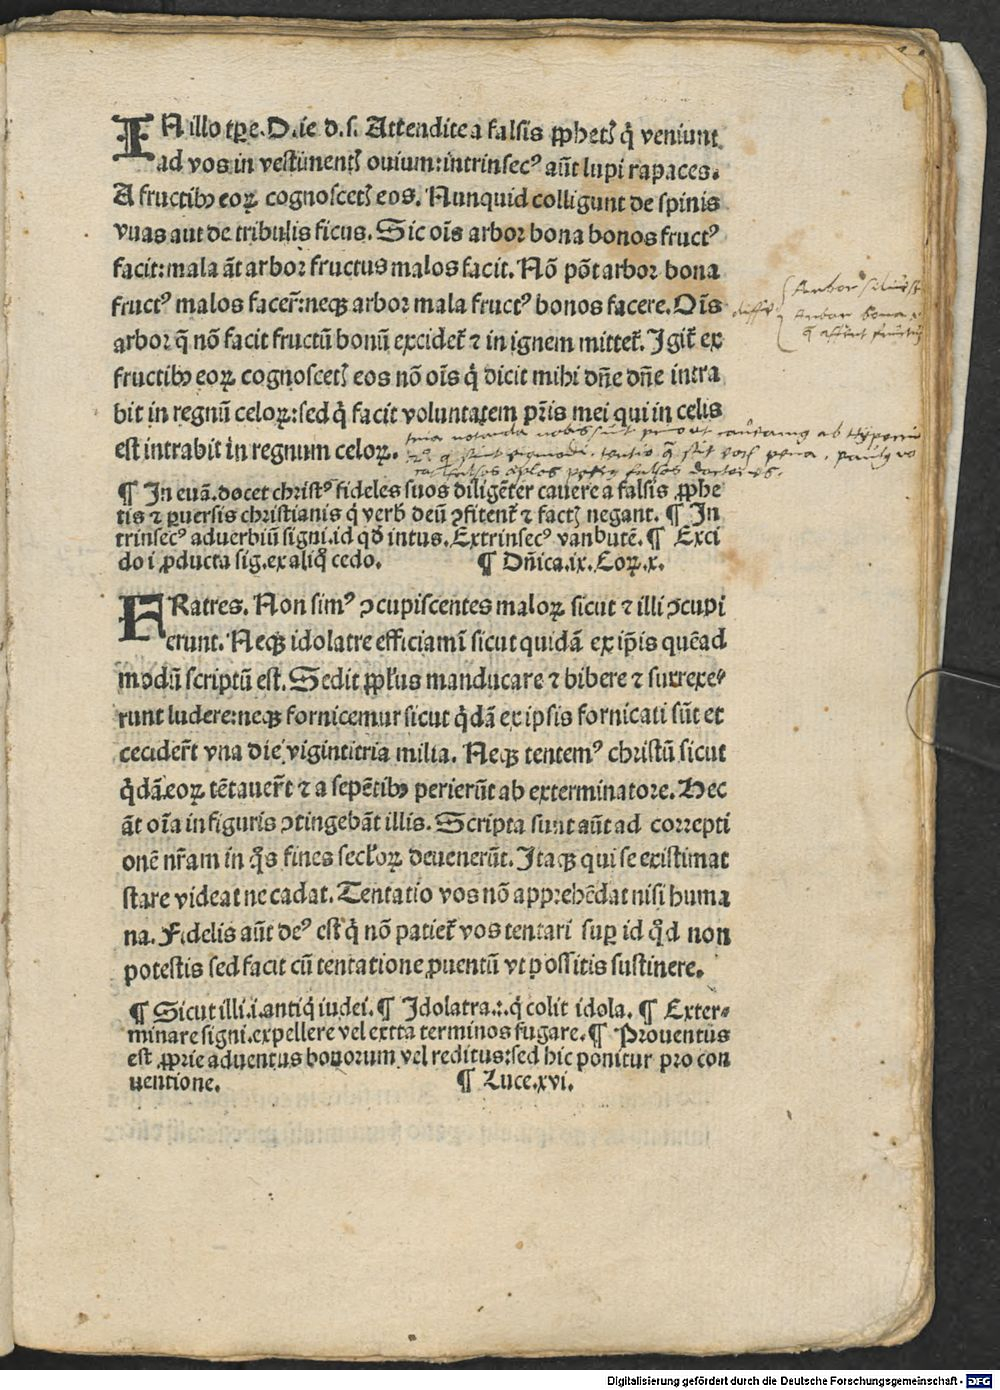 IN illo tꝑe. D. ie d. s. Attendite a falsis ꝓphetꝭ q̇ veniunt
ad vos in vestimentꝭ ouium: intrinsecꝰ aūt lupi rapaces.
A fructibꝰ eoꝝ cognoscetꝭ eos. Nunquid colligunt de spinis
vuas aut de tribulis ficus. Sic oīs arbor bona bonos fructꝰ
facit: mala āt arbor fructus malos facit. Nō pōt arbor bona
fructꝰ malos facer̄: neqꝫ arbor mala fructꝰ bonos facere. Oīs
arbor q̄ nō facit fructū bonū excidet᷑ ⁊ in ignem mittet᷑. Igit᷑ ex
fructibꝰ eoꝝ cognoscetꝭ eos nō oīs q̇ dicit mihi dn̄e dn̄e intra
bit in regnū celoꝝ: sed q̇ facit voluntatem pr̄is mei qui in celis
est intrabit in regnum celoꝝ.
Arbor
diffr̄
Arbor bona
falsos doctores.
¶ In euā. docet christꝰ fideles suos diligēter cauere a falsis ꝓphe
tis ⁊ ꝑuersis christianis q̇ verbꝭ deū ꝯfitent᷑ ⁊ factꝭ negant. ¶ In
trinsecꝰ aduerbiū signi. id qḋ intus. Extrinsecꝰ van butē. ¶ Exci
do i ꝓducta sig. ex aliq̊ cedo. ¶ Dn̄ica. ix. Coꝝ. x.
FRatres. Non simꝰ ꝯcupiscentes maloꝝ sicut ⁊ illi ꝯcupi
erunt. Neqꝫ idolatre efficiamī sicut quidā ex ip̄is quēad
modū scriptū est. Sedit ꝓpl̓us manducare ⁊ bibere ⁊ surrexe⸗
runt ludere: neqꝫ fornicemur sicut q̇dā ex ipsis fornicati sūt et
cecider̄t vna die vigintitria milia. Neqꝫ tentemꝰ christū sicut
q̇dā eoꝝ tētauer̄t ⁊ a sepētibꝰ perierūt ab exterminatore. Hec
āt oīa in figuris ꝯtingebāt illis. Scripta sunt aūt ad correpti
onē nr̄am in q̊s fines secl̓oꝝ deuenerūt. Itaqꝫ qui se existimat
stare videat ne cadat. Tentatio vos nō apprehēdat nisi huma
na. Fidelis aūt deꝰ est q̇ nō patiet᷑ vos tentari suꝑ id q̊d non
potestis sed facit cū tentatione ꝓuentū vt possitis sustinere.
¶ Sicut illi. i. antiq̇ iudei. ¶ Idolatra. :. q̇ colit idola. ¶ Exter⸗
minare signi. expellere vel extta terminos fugare. ¶ Prouentus
est ꝓprie aduentus bonorum vel reditus: sed hic ponitur pro con
uentione. ¶ Luce. xvi.
Digitalisierung gefördert durch die Deutsche Forschungsgemeinschaft - DFG